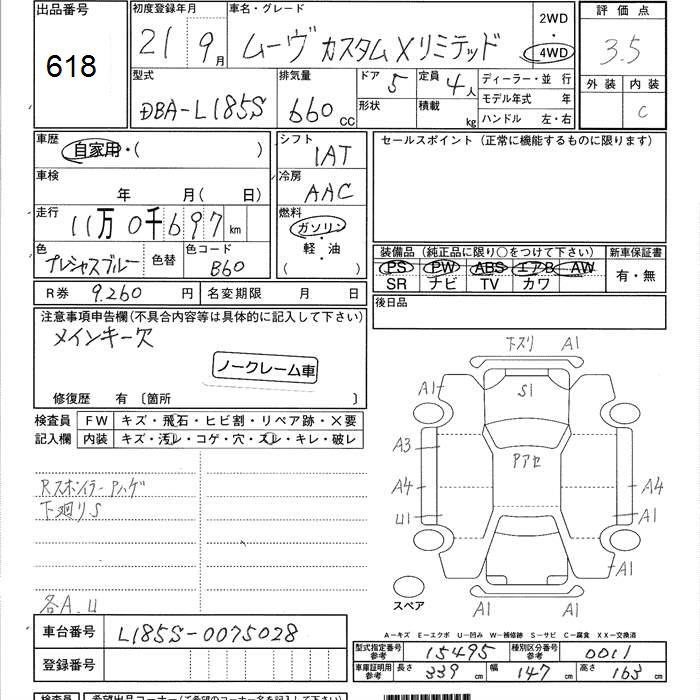 出品番号
618
初度登録年月
21 9月
車名・グレード
ムーヴ カスタム X リミテッド
2WD
・
4WD
評価点
3.5
外装 内装
C
型式
DBA-L185S
排気量
660 CC
ドア 5
形状
定員 4人
積載 kg
ディーラー・並行
モデル年式 年
ハンドル 左・右
車歴
自家用・( )
シフト
IAT
セールスポイント（正常に機能するものに限ります）
車検
年 月( 日)
冷房
AAC
走行
11万0千697km
燃料
ガソリン
・
軽・油
( )
色
プレシャスブルー
色替
色コード
B60
装備品（純正品に限り○をつけて下さい）
新車保証書
PS PW ABS エアB AW
SR ナビ TV カワ
有・無
R券 9.260 円
名変期限 月 日
後日品
注意事項申告欄（不具合内容等は具体的に記入して下さい）
メインキー欠
ノークレーム車
修復歴 有〔箇所 〕
検査員
記入欄
FW キズ・飛石・ヒビ割・リペア跡・×要
内装 キズ・汚レ・コゲ・穴・スレ・キレ・破レ
Rスポイラー Pハゲ
下廻りS
各A.U
下スリ A1
A1 S1 A1
A3
Pアセ
A4 A4
U1 A1
A1 A1
スペア
A1 A1
A－キズ E－エクボ U－凹み W－補修跡 S－サビ C－腐食 XX－交換済
車台番号 L185S-0075028
登録番号
型式指定番号
参考
15495
種別区分番号
参考
0011
車庫証明用
参考
長さ 339 cm 幅 147 cm 高さ 163 cm
検査員 希望出品コーナー（ご希望のコーナー名を記入して下さい）